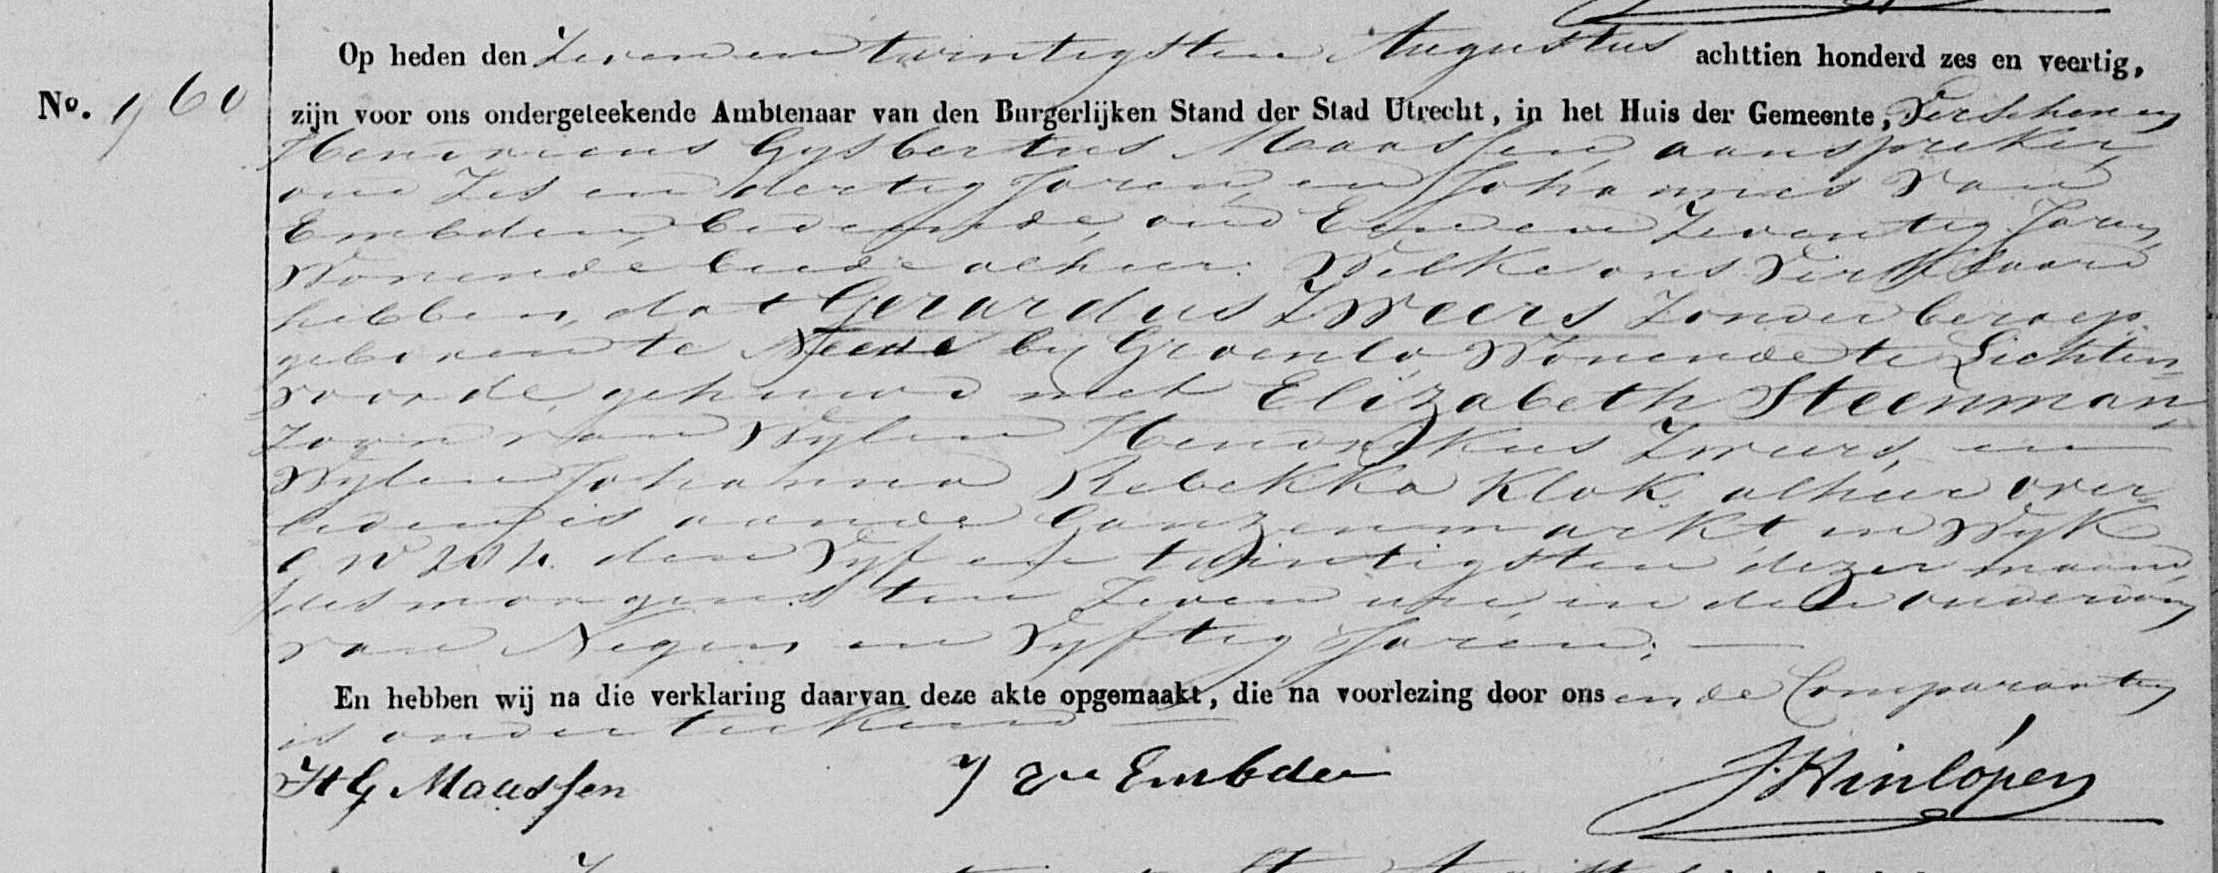 Op heden den Zeven en twintigsten Augustus achttien honderd zes en veertig,
No. 960
zijn voor ons ondergeteekende Ambtenaar van den Burgerlijken Stand der Stad Utrecht, in het Huis der Gemeente, Verschenen
Henricus Gysbertus Maassen, aanspreker,
oud Zes en dertig Jaren, en Johannes van
Embden, bediende, oud Een en Zeventig Jaren,
Wonende beide alhier. Welke ons Verklaard
hebben, dat Gerardus Zweers Zonder beroep
geboren te Neede by Groenlo, Wonende te Lichten-
voorde, gehuwd met Elizabeth Steenman,
Zoon van Wylen Hendrikus Zweers, en
Wylen Johanna Rebekka Klok alhier over-
leden is aan de Ganzenmarkt in Wyk
den Vyf en twintigsten dezer maand,
des morgens ten Zeven ure, in den ouderdom
van Negen en Vyftig Jaren.
En hebben wij na die verklaring daarvan deze akte opgemaakt, die na voorlezing door ons en de Comparanten
is onderteekend
HG Maassen J vn Embden J. Hinlópen